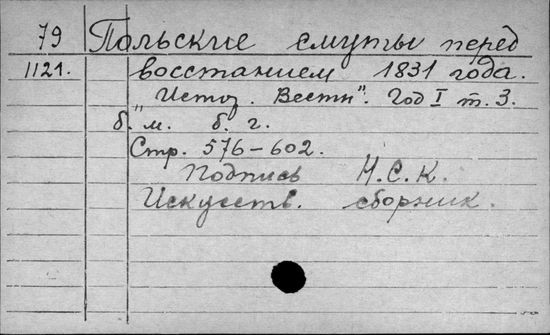 79 Польские смуты перед
1121. восстанием 1831 года.
„Истор. Вестн". Год I т. 3.
б. м. б. г.
Стр. 576-602.
Подпись Н.С.К.
Искусств. сборник.